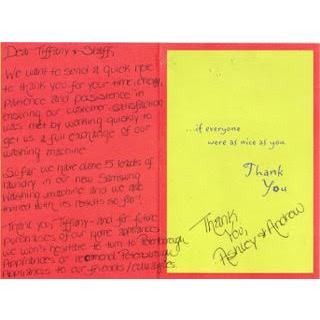 Dear Tiffany & Staff,
We want to send a quick note
to thank you for your time, energy,
patience and persistence in
ensuring our customer satisfaction
was met by working quickly to
get us a full exchange of our
washing machine.
So far we have done 15 loads of
laundry in our new Samsung
washing machine and we are
thrilled with its results so far!
Thank you, Tiffany - and for future
purchases of our home appliances
we won't hesitate to turn to Peterborough
Appliances or recommend Peterborough
Appliances to our friends/colleagues.
...if everyone
were as nice as you.
Thank
You
Thank
you,
Ashley & Andrew